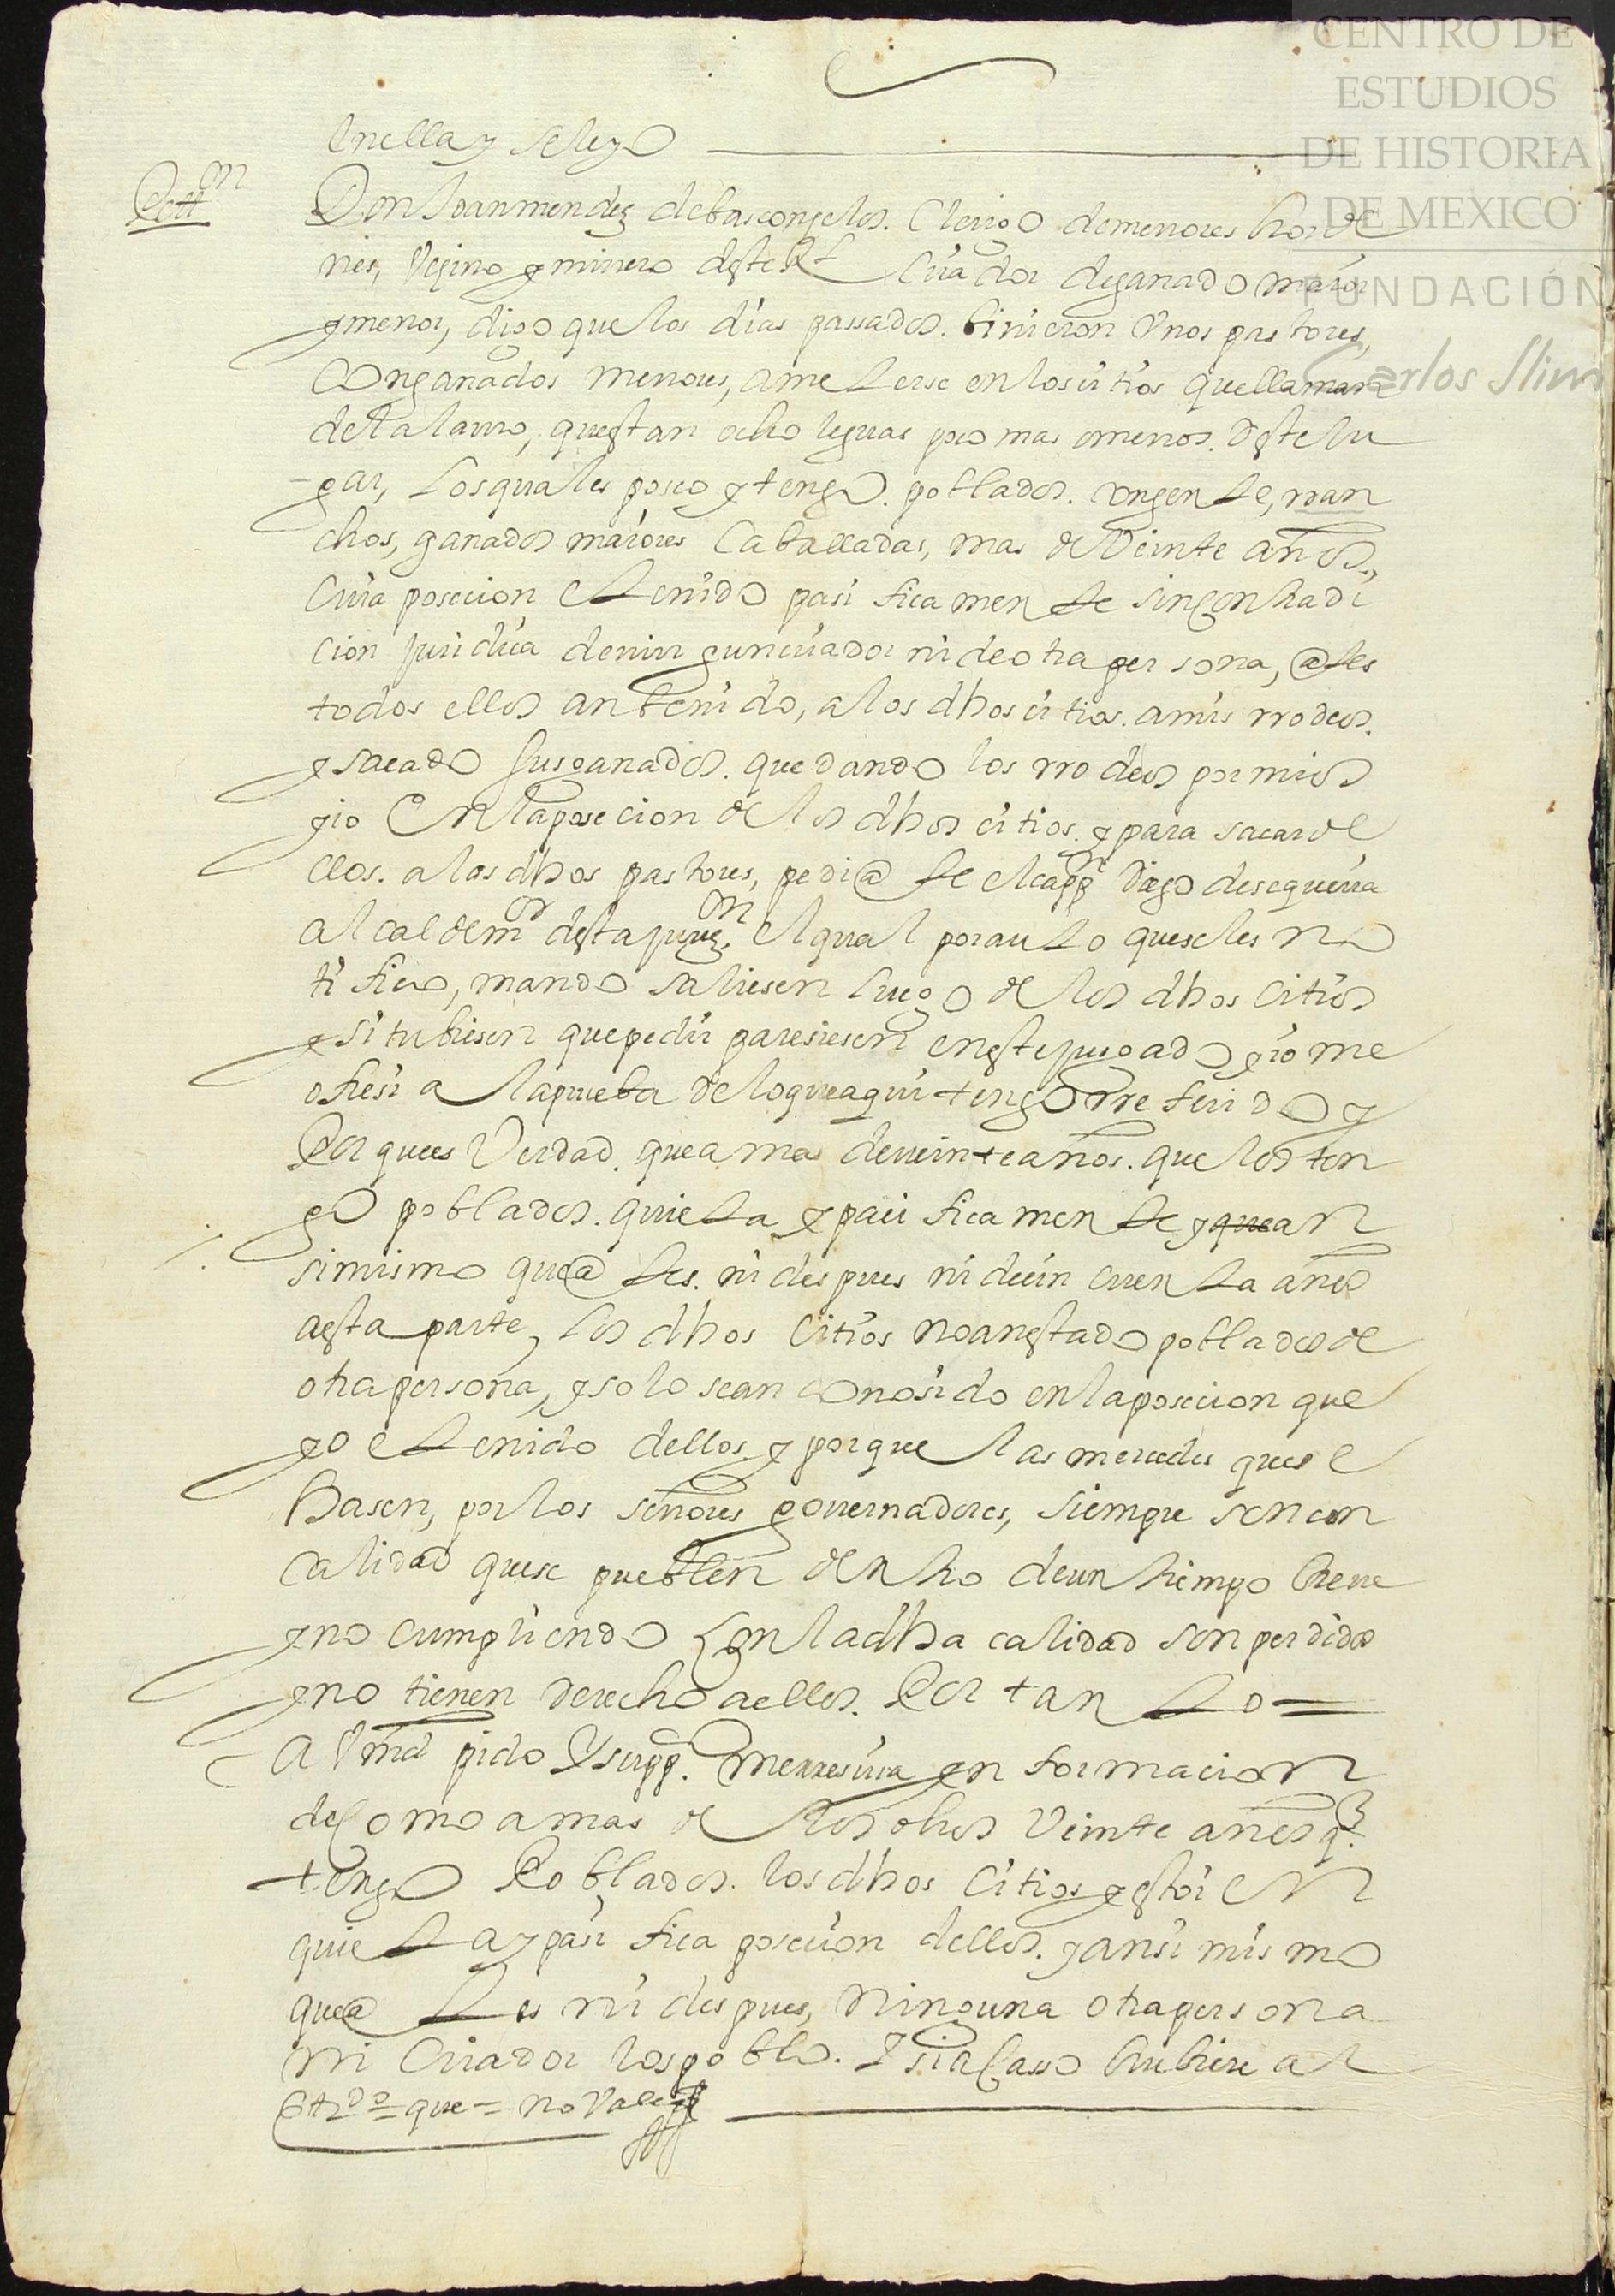 CENTRO DE
ESTUDIOS
DE HISTORIA
DE MEXICO
FUNDACIÓN
Carlos Slim
en ella y se leyo
Pett.on
Don Joan mendez de basconselos. Clerigo de menores horde
nes, Vezino y minero deste Rl Criador de ganado maior
y menor, digo que los dias passados. binieron Unos pastores,
Con ganados menores, a meterse en los sitios que llaman
del alamo, questan ocho leguas poco mas o menos. deste lu
gar, Los quales poseo y tengo. poblados. con gente, rran
chos, ganados maiores Caballadas, mas de Veinte años.,
Cuia posecion e tenido pasificamente sin contradi
cion juridica de nin gun criador ni de otra persona, antes
todos ellos an benido, a los dhos citios. a mis rrodeos.
y sacado sus ganados. quedando los rrodeos por mios
y io En la posecion de los dhos citios. y para sacar de
ellos. a los dhos pastores, pedi ante el capp.n Diego desequeira
alcalde m.or desta juriz.on El qual por auto que se les no
tifico, mando saliesen luego de los dhos Citios
y si tubiesen que pedir paresiesen en este jusgado y io me
ofresi a la prueba de lo que aqui tengo rreferido y
Por ques Verdad. que a mas de veinte años. que los ten
go poblados. quieta y pacificamente y que an
simismo que antes. ni despues ni de cin cuenta años
a esta parte, Los dhos Citios no an estado poblados de
otra persona, y solo se an conosido en la posecion que
yo e tenido dellos. y por que las mercedes que se
hasen, por los señores governadores, siempre son con
calidad que se pueblen dentro de un tiempo breve
y no cumpliendo Con la dha calidad son perdidos
y no tienen derecho a ellos. Por tanto =
A Vmd pido Y supp.co me rresiva ynformacion
de Como a mas de los dhos Veinte años q.
tengo Poblados. los dhos Citios y estoi En
quieta y pasifica posecion dellos. y ansi mismo
que antes ni despues, ninguna otra persona
ni Criador los poblo. Y si a Casso hubiere al
Ettdo = que = no Vale